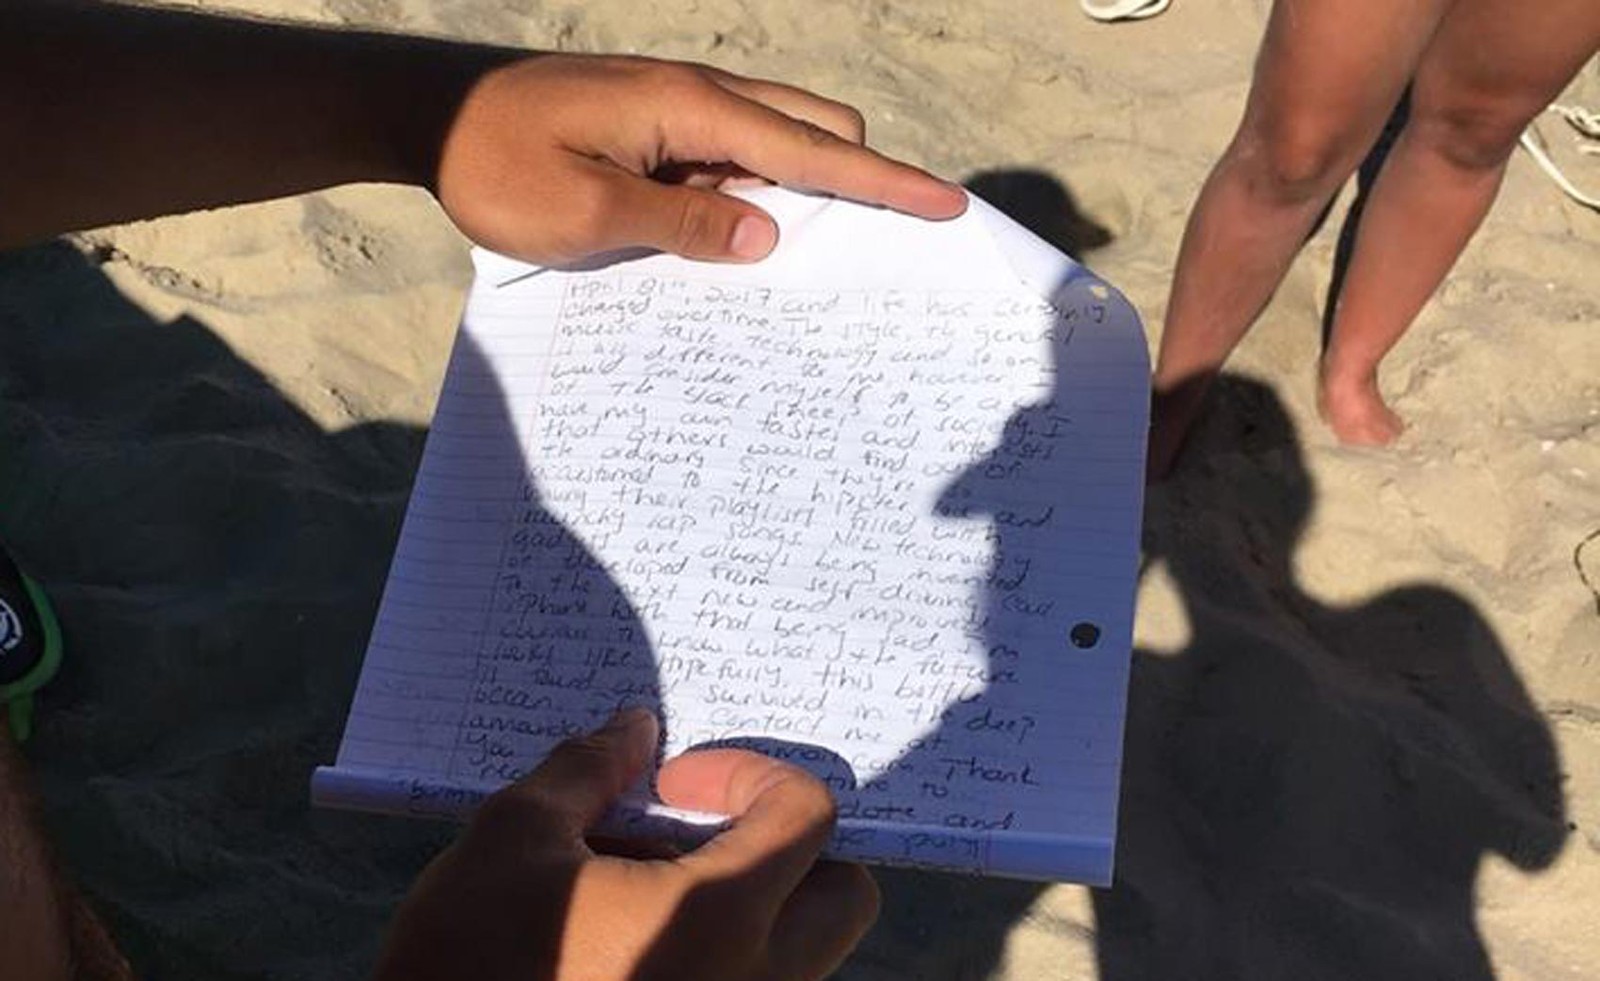 April 21st, 2017 and life has certainly
changed overtime. The style, the general
music taste technology and so on
is all different. To me, however I
would consider myself to be a
of the black sheep of society. I
have my own tastes and interests
that others would find out of
the ordinary since they're so
accustomed to the hipster and
having their playlist filled with
raunchy rap songs. New technology
gadgets are always being invented
or developed from self-driving car
to the next new and improved
iPhone. With that being said, I'm
curious to know what the future
looks like. Hopefully, this bottle
is found and survived in the deep
ocean. contact me at
amanda Thank
You time to
rea date and